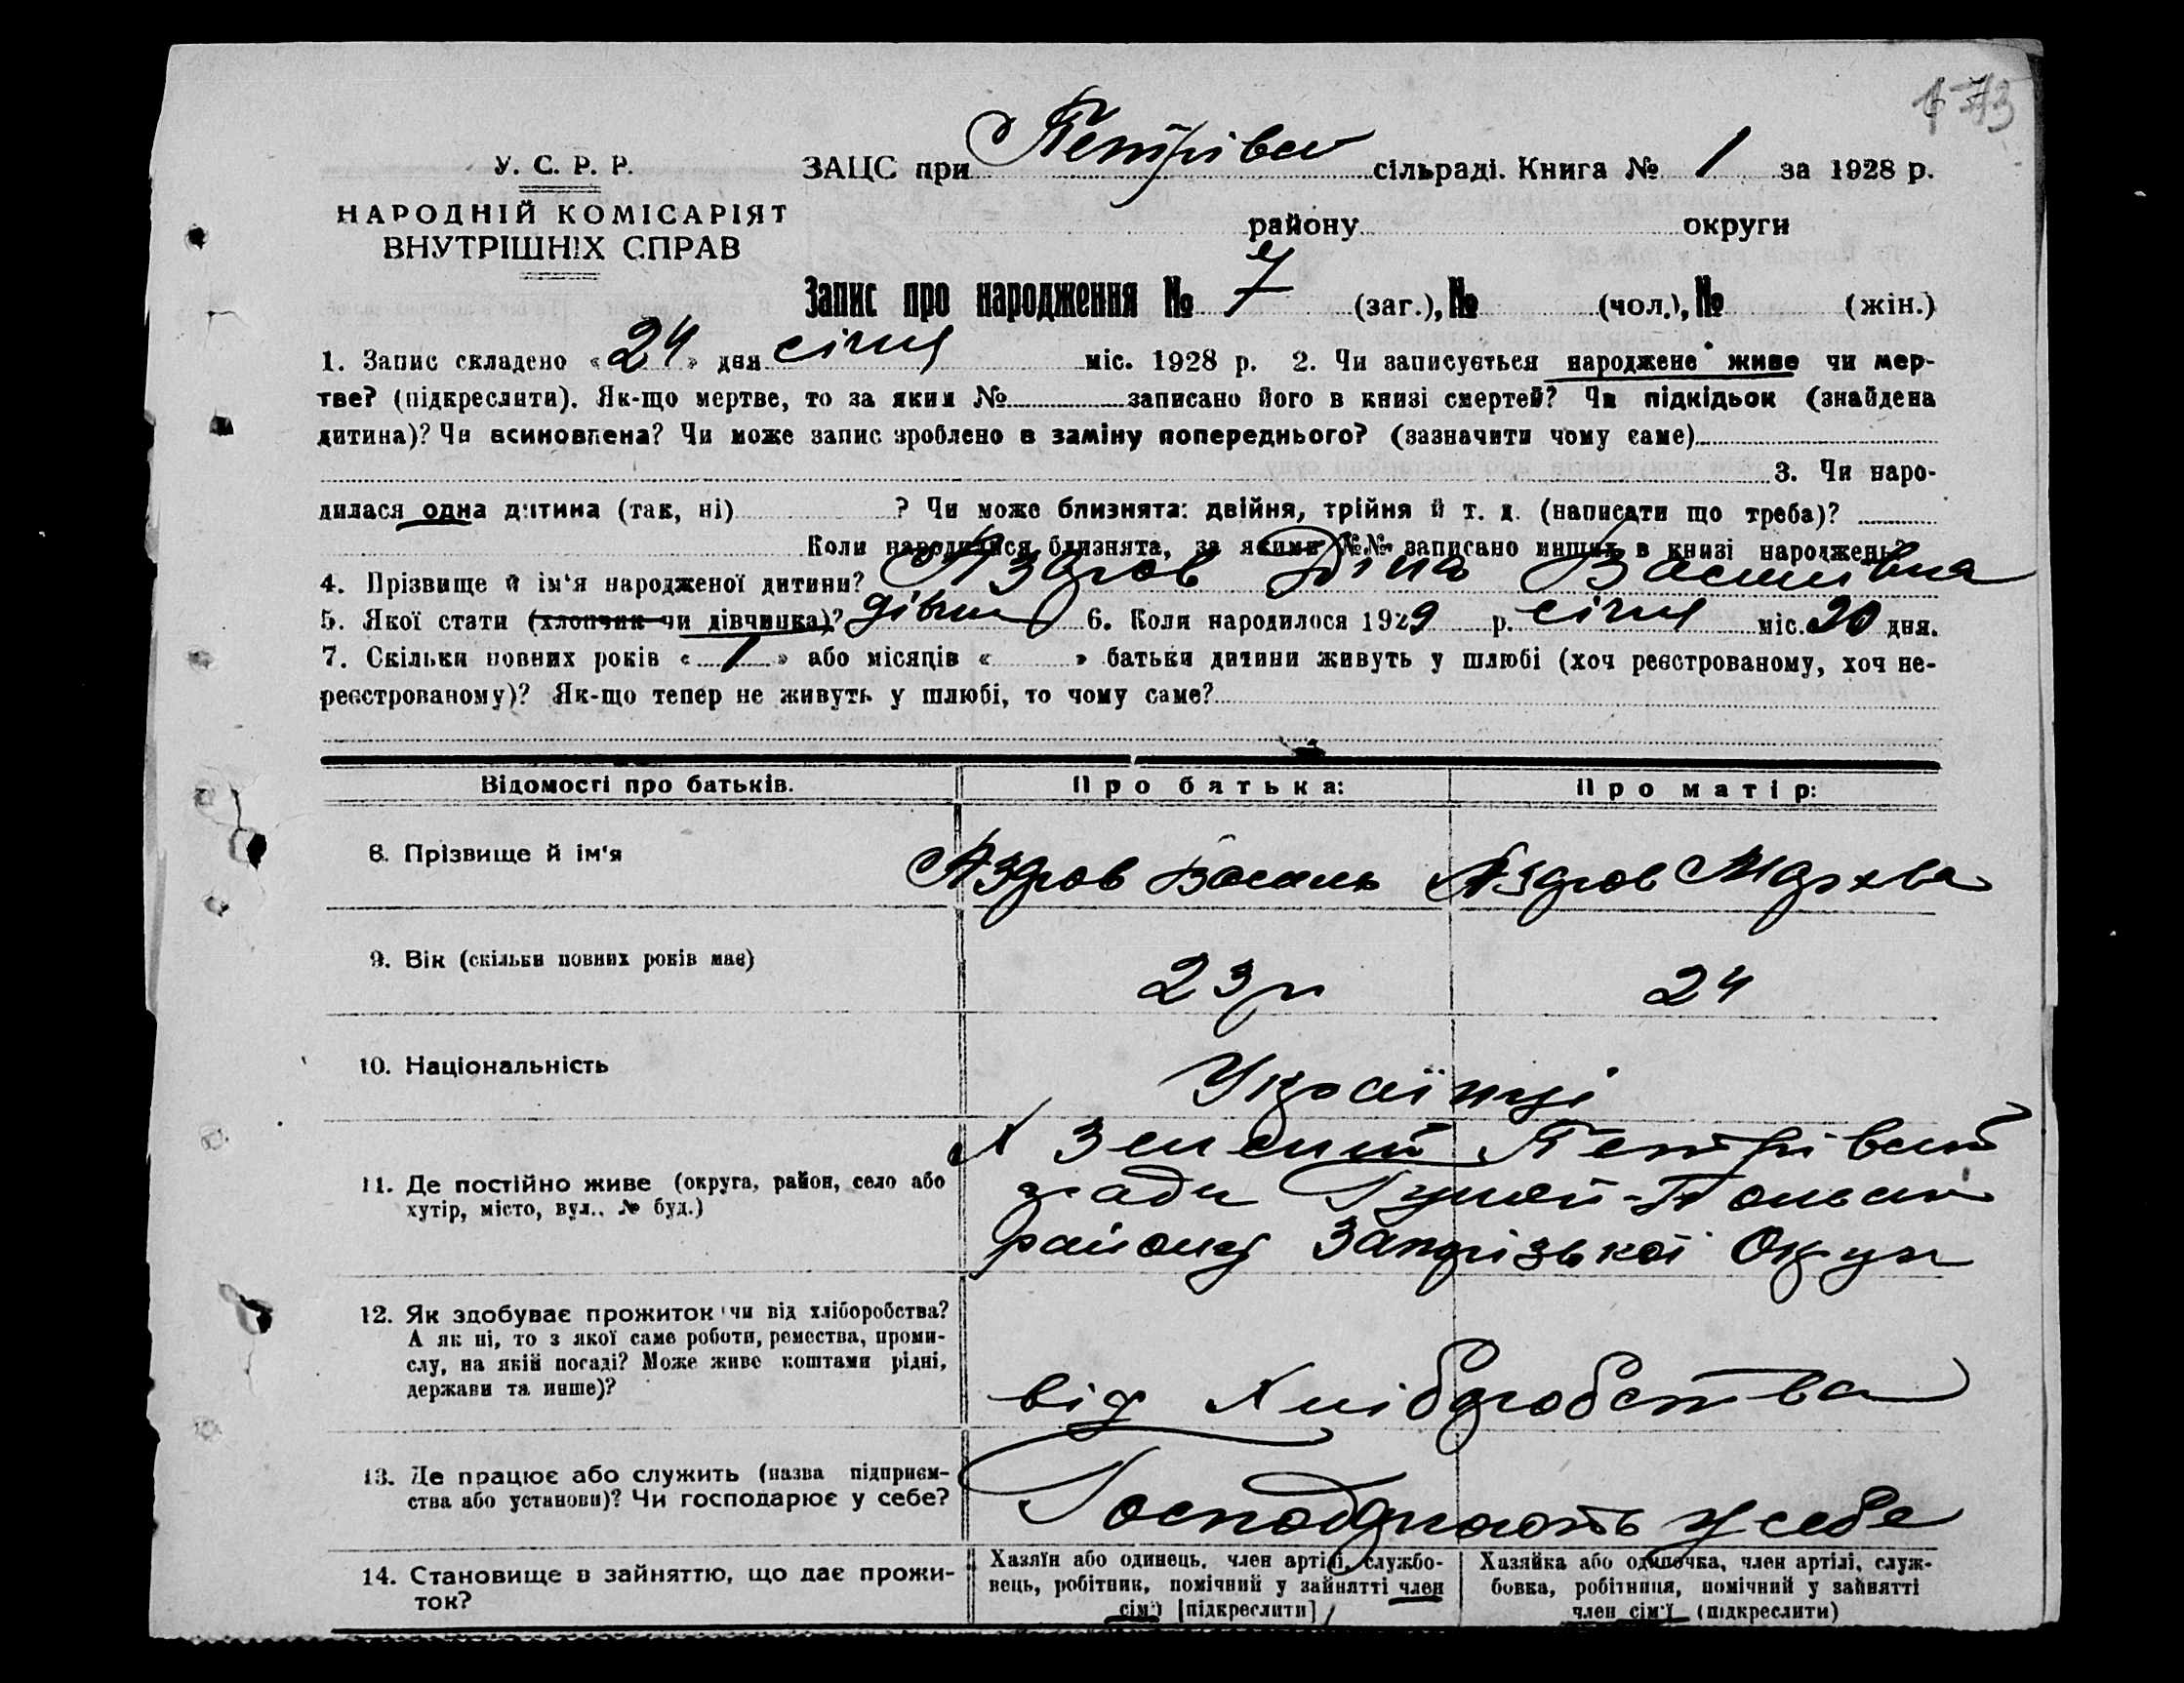 173
У. С. Р. Р.
НАРОДНІЙ КОМІСАРІЯТ
ВНУТРІШНІХ СПРАВ
ЗАЦС при Петрівсь сільраді. Книга № 1 за 1928 р.
району округи
Запис про народження № 7 (заг.), № (чол.), № (жін.)
1. Запис складено «24» дня січня міс. 1928 р. 2. Чи записується народжене живе чи мер-
тве? (підкреслити). Як-що мертве, то за яким № записано його в книзі смертей? Чи підкідьок (знайдена
дитина)? Чи всиновлена? Чи може запис зроблено в заміну попереднього? (зазначити чому саме)
3. Чи наро-
дилася одна дитина (так, ні) ? Чи може близнята: двійня, трійня й т. д. (написати що треба)?
Коли народилися близнята, за якими №№ записано инших в книзі народжень?
4. Прізвище й ім'я народженої дитини? Азаров Діна Василівна
5. Якої стати (хлопчик чи дівчинка)? дівчи 6. Коли народилося 1929 р. січня міс. 20 дня.
7. Скільки повних років «1» або місяців « » батьки дитини живуть у шлюбі (хоч реєстрованому, хоч не-
реєстрованому)? Як-що тепер не живуть у шлюбі, то чому саме?
Відомості про батьків. Про батька: Про матір:
8. Прізвище й ім'я Василь
9. Вік (скільки повних років має) 23 р 24
10. Національність Українці
11. Де постійно живе (округа, район, село або
хутір, місто, вул., № буд.)
Петрівської
ради Гуляй-Польськ
району Запорізької Округи
12. Як здобуває прожиток чи від хліборобства?
А як ні, то з якої саме роботи, ремества, проми-
слу, на якій посаді? Може живе коштами рідні,
держави та инше)?
від Хліборобства
13. Де працює або служить (назва підприєм-
ства або установи)? Чи господарює у себе?
Господарюють у себе
14. Становище в зайняттю, що дає прожи-
ток?
Хазяїн або одинець, член артілі, службо-
вець, робітник, помічний у зайнятті член
сім'ї [підкреслити]
Хазяйка або одиночка, член артілі, служ-
бовка, робітниця, помічний у зайнятті
член сім'ї (підкреслити)